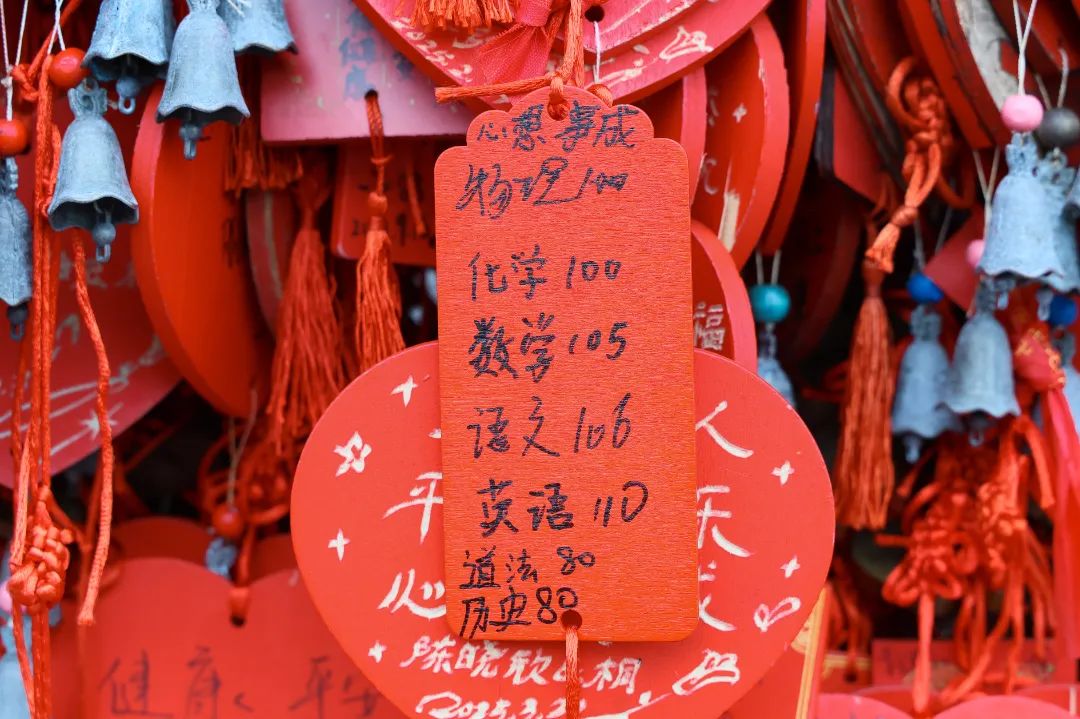 心想事成
物理100
化学100
数学105
语文106
英语110
道法80
历史80
人
平
乐
心
陈晓欣
桐
2025.3.2
福
健康、平安
2025.